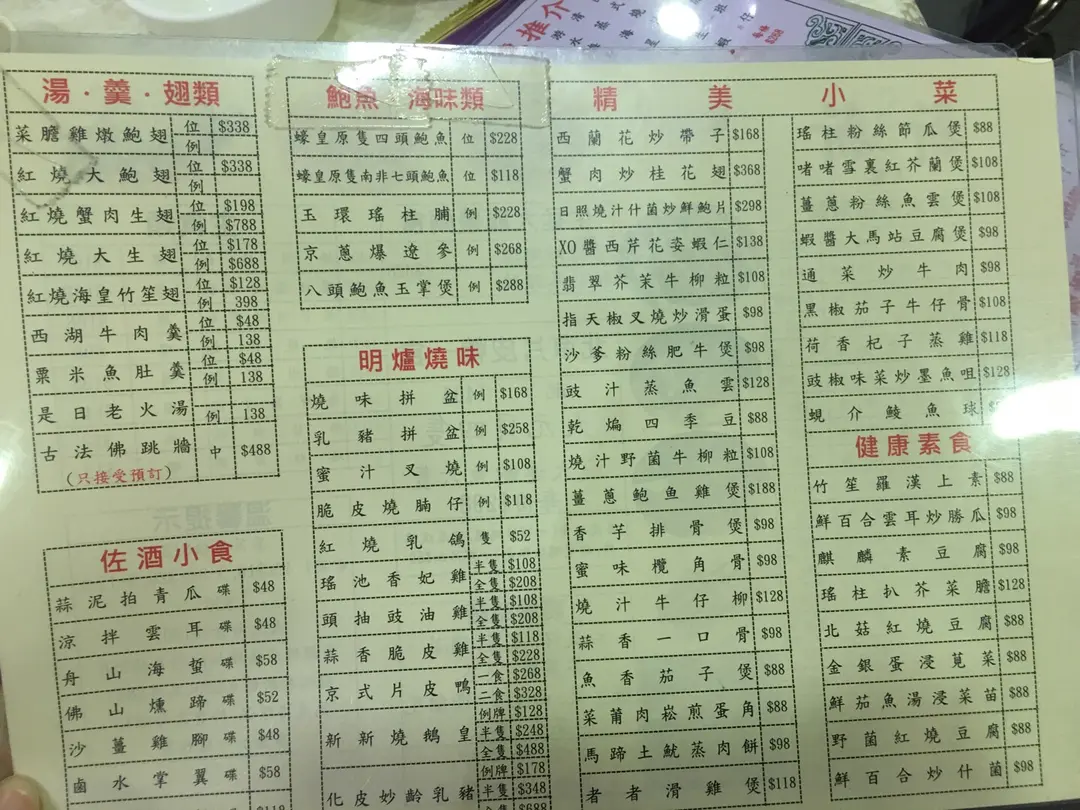 湯·羹·翅類
菜膽雞燉鮑翅 位 $338
例
紅燒大鮑翅 位 $338
例
紅燒蟹肉生翅 位 $198
例 $788
紅燒大生翅 位 $178
例 $688
紅燒海皇竹笙翅 位 $128
例 398
西湖牛肉羹 位 $48
例 138
粟米魚肚羹 位 $48
例 138
是日老火湯 例 138
古法佛跳牆 中 $488
(只接受預訂)
佐酒小食
蒜泥拍青瓜 碟 $48
涼拌雲耳 碟 $48
舟山海蜇 碟 $58
佛山燻蹄 碟 $52
沙薑雞腳 碟 $48
鹵水掌翼 碟 $58
鮑魚 海味類
蠔皇原隻四頭鮑魚 位 $228
蠔皇原隻南非七頭鮑魚 位 $118
玉環瑤柱脯 例 $228
京蔥爆遼參 例 $268
八頭鮑魚玉掌煲 例 $288
明爐燒味
燒味拼盆 例 $168
乳豬拼盆 例 $258
蜜汁叉燒 例 $108
脆皮燒腩仔 例 $118
紅燒乳鴿 隻 $52
瑤池香妃雞 半隻 $108
全隻 $208
頭抽豉油雞 半隻 $108
全隻 $208
蒜香脆皮雞 半隻 $118
全隻 $228
京式片皮鴨 一食 $268
二食 $328
新新燒鵝皇 例牌 $128
半隻 $248
全隻 $488
化皮妙齡乳豬 例牌 $178
半隻 $348
全隻 $688
精美小菜
西蘭花炒帶子 $168
蟹肉炒桂花翅 $368
日照燒汁什菌炒鮮鮑片 $298
XO醬西芹花姿蝦仁 $138
翡翠芥茉牛柳粒 $108
指天椒叉燒炒滑蛋 $98
沙爹粉絲肥牛煲 $98
豉汁蒸魚雲 $128
乾煸四季豆 $88
燒汁野菌牛柳粒 $108
薑蔥鮑魚雞煲 $188
香芋排骨煲 $98
蜜味欖角骨 $98
燒汁牛仔柳 $128
蒜香一口骨 $98
魚香茄子煲 $88
菜莆肉崧煎蛋角 $88
馬蹄土魷蒸肉餅 $98
者者滑雞煲 $118
瑤柱粉絲節瓜煲 $88
啫啫雪裏紅芥蘭煲 $108
薑蔥粉絲魚雲煲 $108
蝦醬大馬站豆腐煲 $98
通菜炒牛肉 $98
黑椒茄子牛仔骨 $108
荷香杞子蒸雞 $118
豉椒味菜炒墨魚咀 $128
蜆介鯪魚球
健康素食
竹笙羅漢上素 $88
鮮百合雲耳炒勝瓜 $98
麒麟素豆腐 $98
瑤柱扒芥菜膽 $128
北菇紅燒豆腐 $88
金銀蛋浸莧菜 $88
鮮茄魚湯浸菜苗 $88
野菌紅燒豆腐 $88
鮮百合炒什菌 $98